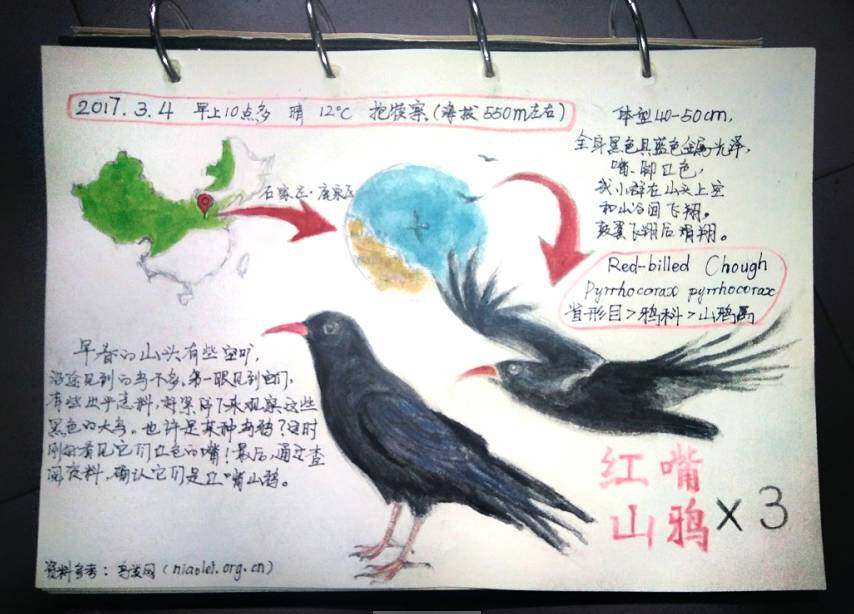 2017.3.4 早上10点多 晴 12℃ 抱犊寨(海拔550m左右)
体型40-50cm,
全身黑色具蓝色金属光泽,
嘴、脚红色,
或小群在山头上空
和山谷间飞翔。
鼓翼飞翔后滑翔。
石家庄·鹿泉区
Red-billed Chough
Pyrrhocorax pyrrhocorax
雀形目>鸦科>山鸦属
早春的山头有些空旷,
沿途见到的鸟不多,第一眼见到它们,
有些出乎意料,赶紧停下来观察这些
黑色的大鸟。也许是某种乌鸦?这时
刚好看见它们红色的嘴!最后,通过查
阅资料,确认它们是红嘴山鸦。
红嘴
山鸦 x 3
资料参考:鸟类网(niaolei.org.cn)